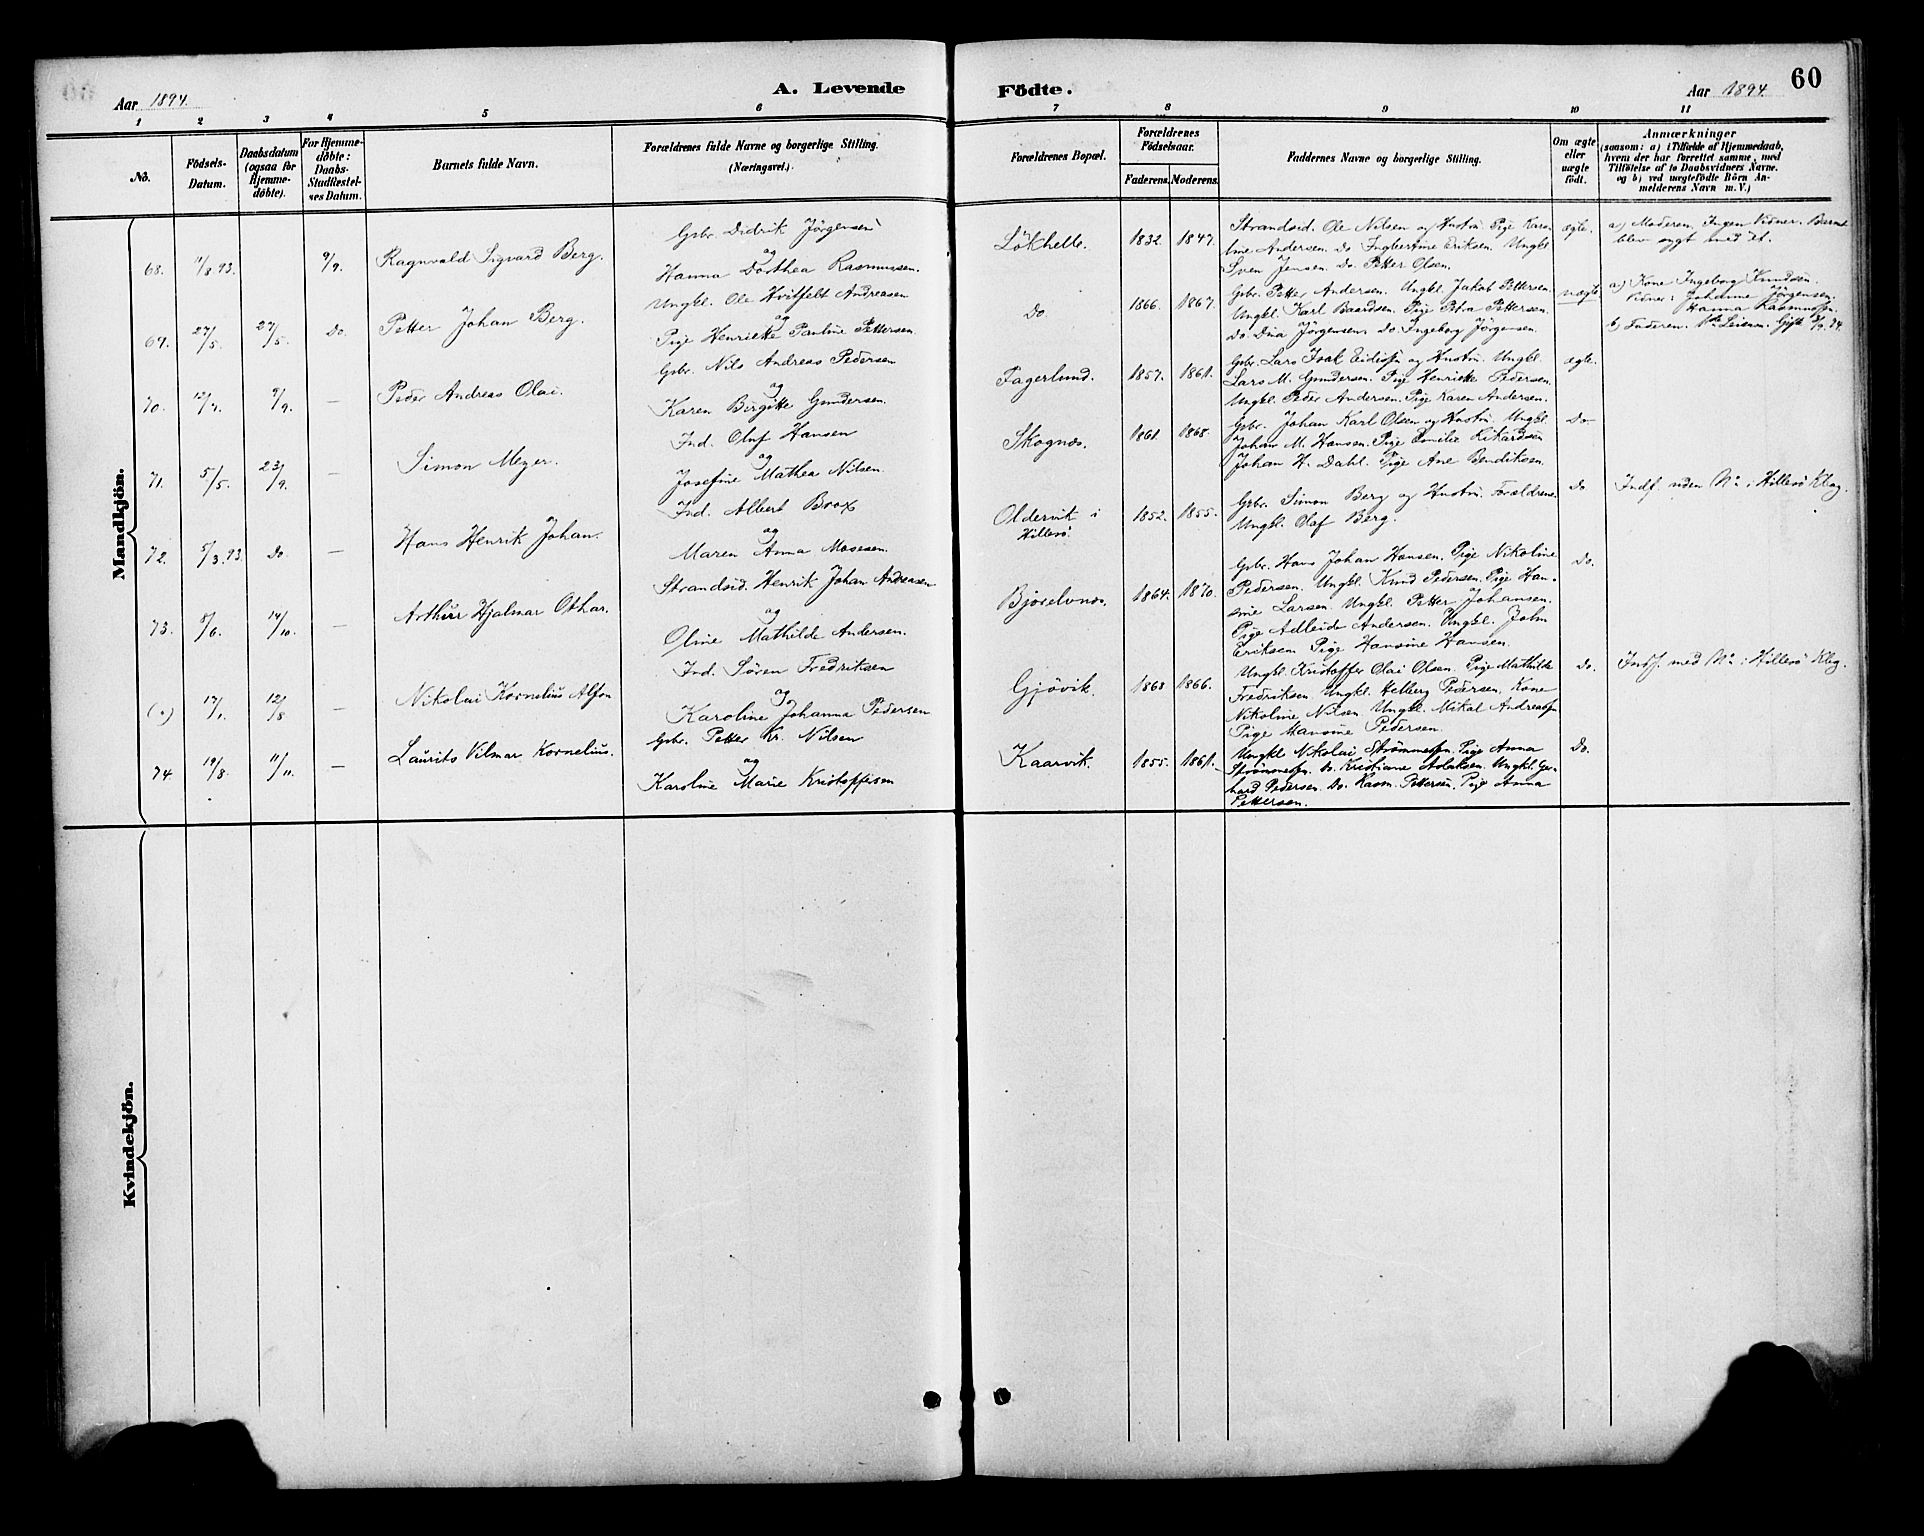 Aar 1894.
A. Levende
Födte.
Aar 1894
60
1 2 3 4 5 6 7 8 9 10 11
No.
Födsels-
Datum.
Daabsdatum
(ogsaa for
Hjemme-
döbte).
For Hjemme-
döbte:
Daabs-
Stadfæstel-
ses Datum.
Barnets fulde Navn.
Forældrenes fulde Navne og borgerlige Stilling.
(Næringsvei.)
Forældrenes Bopæl.
Forældrenes
Födselsaar.
Faderens.
Moderens.
Faddernes Navne og borgerlige Stilling.
Om ægte
eller
uægte
födt.
Anmærkninger
(saasom: a) i Tilfælde af Hjemmedaab,
hvem der har forrettet samme, med
Tilföielse af to Daabsvidners Navne.
og b) ved uægtefödte Börn An-
melderens Navn m. V.)
Mandkjön.
68.
9/9.
Ragnvald Sigvard Berg.
Gbr. Didrik Jörgensen
og
Hanna Dorthea Rasmussen.
Lökhelle.
1832.
1847.
Strandsid. Ole Nilsen og Hustru. Pige Karo-
line Andersen. Do Ingbertine Eriksen. Ungkl.
Sven Jensen. Do. Petter Olsen.
ægte.
a) Moderen. Ingen Vidner. Barnet
blev sygt med et.
69.
27/5.
27/5.
Do.
Petter Johan Berg.
Ungkl. Ole Hvitfelt Andreasen
og
Pige Henriette Pauline Pettersen.
Do
1866.
1867.
Gbr. Petter Andersen. Ungkl. Jakob Pettersen.
Ungkl. Karl Baardsen. Pige Petra Pettersen.
Do. Dina Jörgensen. Do Ingeborg Jörgensen.
uægte.
a) Kone Ingeborg Knudsen.
Vidner: Johanne Jörgensen.
Hanna Rasmussen.
b) Faderen.
70.
12/7.
9/9.
—
Peder Andreas Olai.
Gbr. Nils Andreas Pedersen
og
Karen Birgitte Gundersen.
Fagerlund.
1857.
1861.
Gbr. Lars Isak Eidissen og Hustru. Ungkl.
Lars M. Gundersen. Pige Henriette Pedersen.
Ungkl. Peder Andersen. Pige Karen Andersen.
ægte.
71.
5/5.
23/9.
—
Simon Meyer.
Ind. Oluf Hansen
og
Josefine Mathea Nilsen.
Skognæs.
1861.
1868.
Gbr. Johan Karl Olsen og Hustru. Ungkl.
Johan M. Hansen. Pige Emilie Rikardsen
Johan H. Dahl. Pige Ane Bendiksen.
Do
72.
5/3.93.
Do
—
Hans Henrik Johan.
Ind. Albert Brox
og
Maren Anna Mosesen.
Oldervik i
Hillesö.
1852.
1855.
Gbr. Simon Berg og Hustru. Forældrene.
Ungkl. Olaf Berg.
Do
Indf. uden No i Hillesö Klbg.
73.
8/6.
14/10.
—
Arthur Hjalmar Othar.
Strandsid. Henrik Johan Andreasen
og
Oline Mathilde Andersen.
Bjorelvnes.
1864.
1870.
Gbr. Hans Johan Hansen. Pige Nikoline
Pedersen. Ungkl. Knud Pedersen. Pige Han-
sine Larsen. Ungkl. Petter Johansen.
Pige Adleide Andersen. Ungkl. John
Eriksen. Pige Hansine Hansen.
Do.
(.)
17/1.
12/8
—
Nikolai Kornelius Alfon
Ind. Sören Fredriksen
og
Karoline Johanna Pedersen
Gjövik.
1868
1866.
Ungkl. Kristoffer Olai Olsen. Pige Mathilde
Fredriksen. Ungkl. Helberg Pedersen. Kone
Nikoline Nilsen. Ungkl. Mikal Andreassen
Pige Hansine Pedersen.
Do.
Indf. med No i Hillesö Klbg.
74
19/8.
11/11.
—
Laurits Vilmar Kornelius.
Gbr. Petter Kr. Nilsen
og
Karoline Marie Kristoffersen
Kaarvik.
1855.
1861.
Ungkl. Nikolai Strömmesen. Pige Anna
Strömmesen. Do. Kristiane Aslaksen. Ungkl. Ger-
hard Pedersen. Do. Rasm. Pettersen. Pige Anna
Pettersen.
Do.
Kvindekjön.